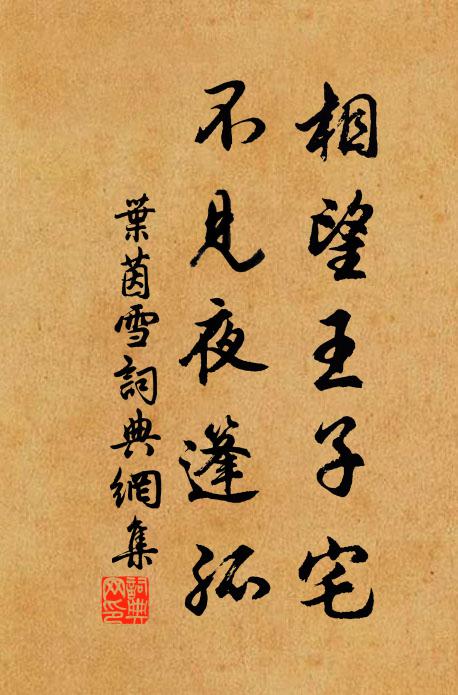 相望王子宅
不見夜篷孤
葉茵雪詞典網集
詞典网印